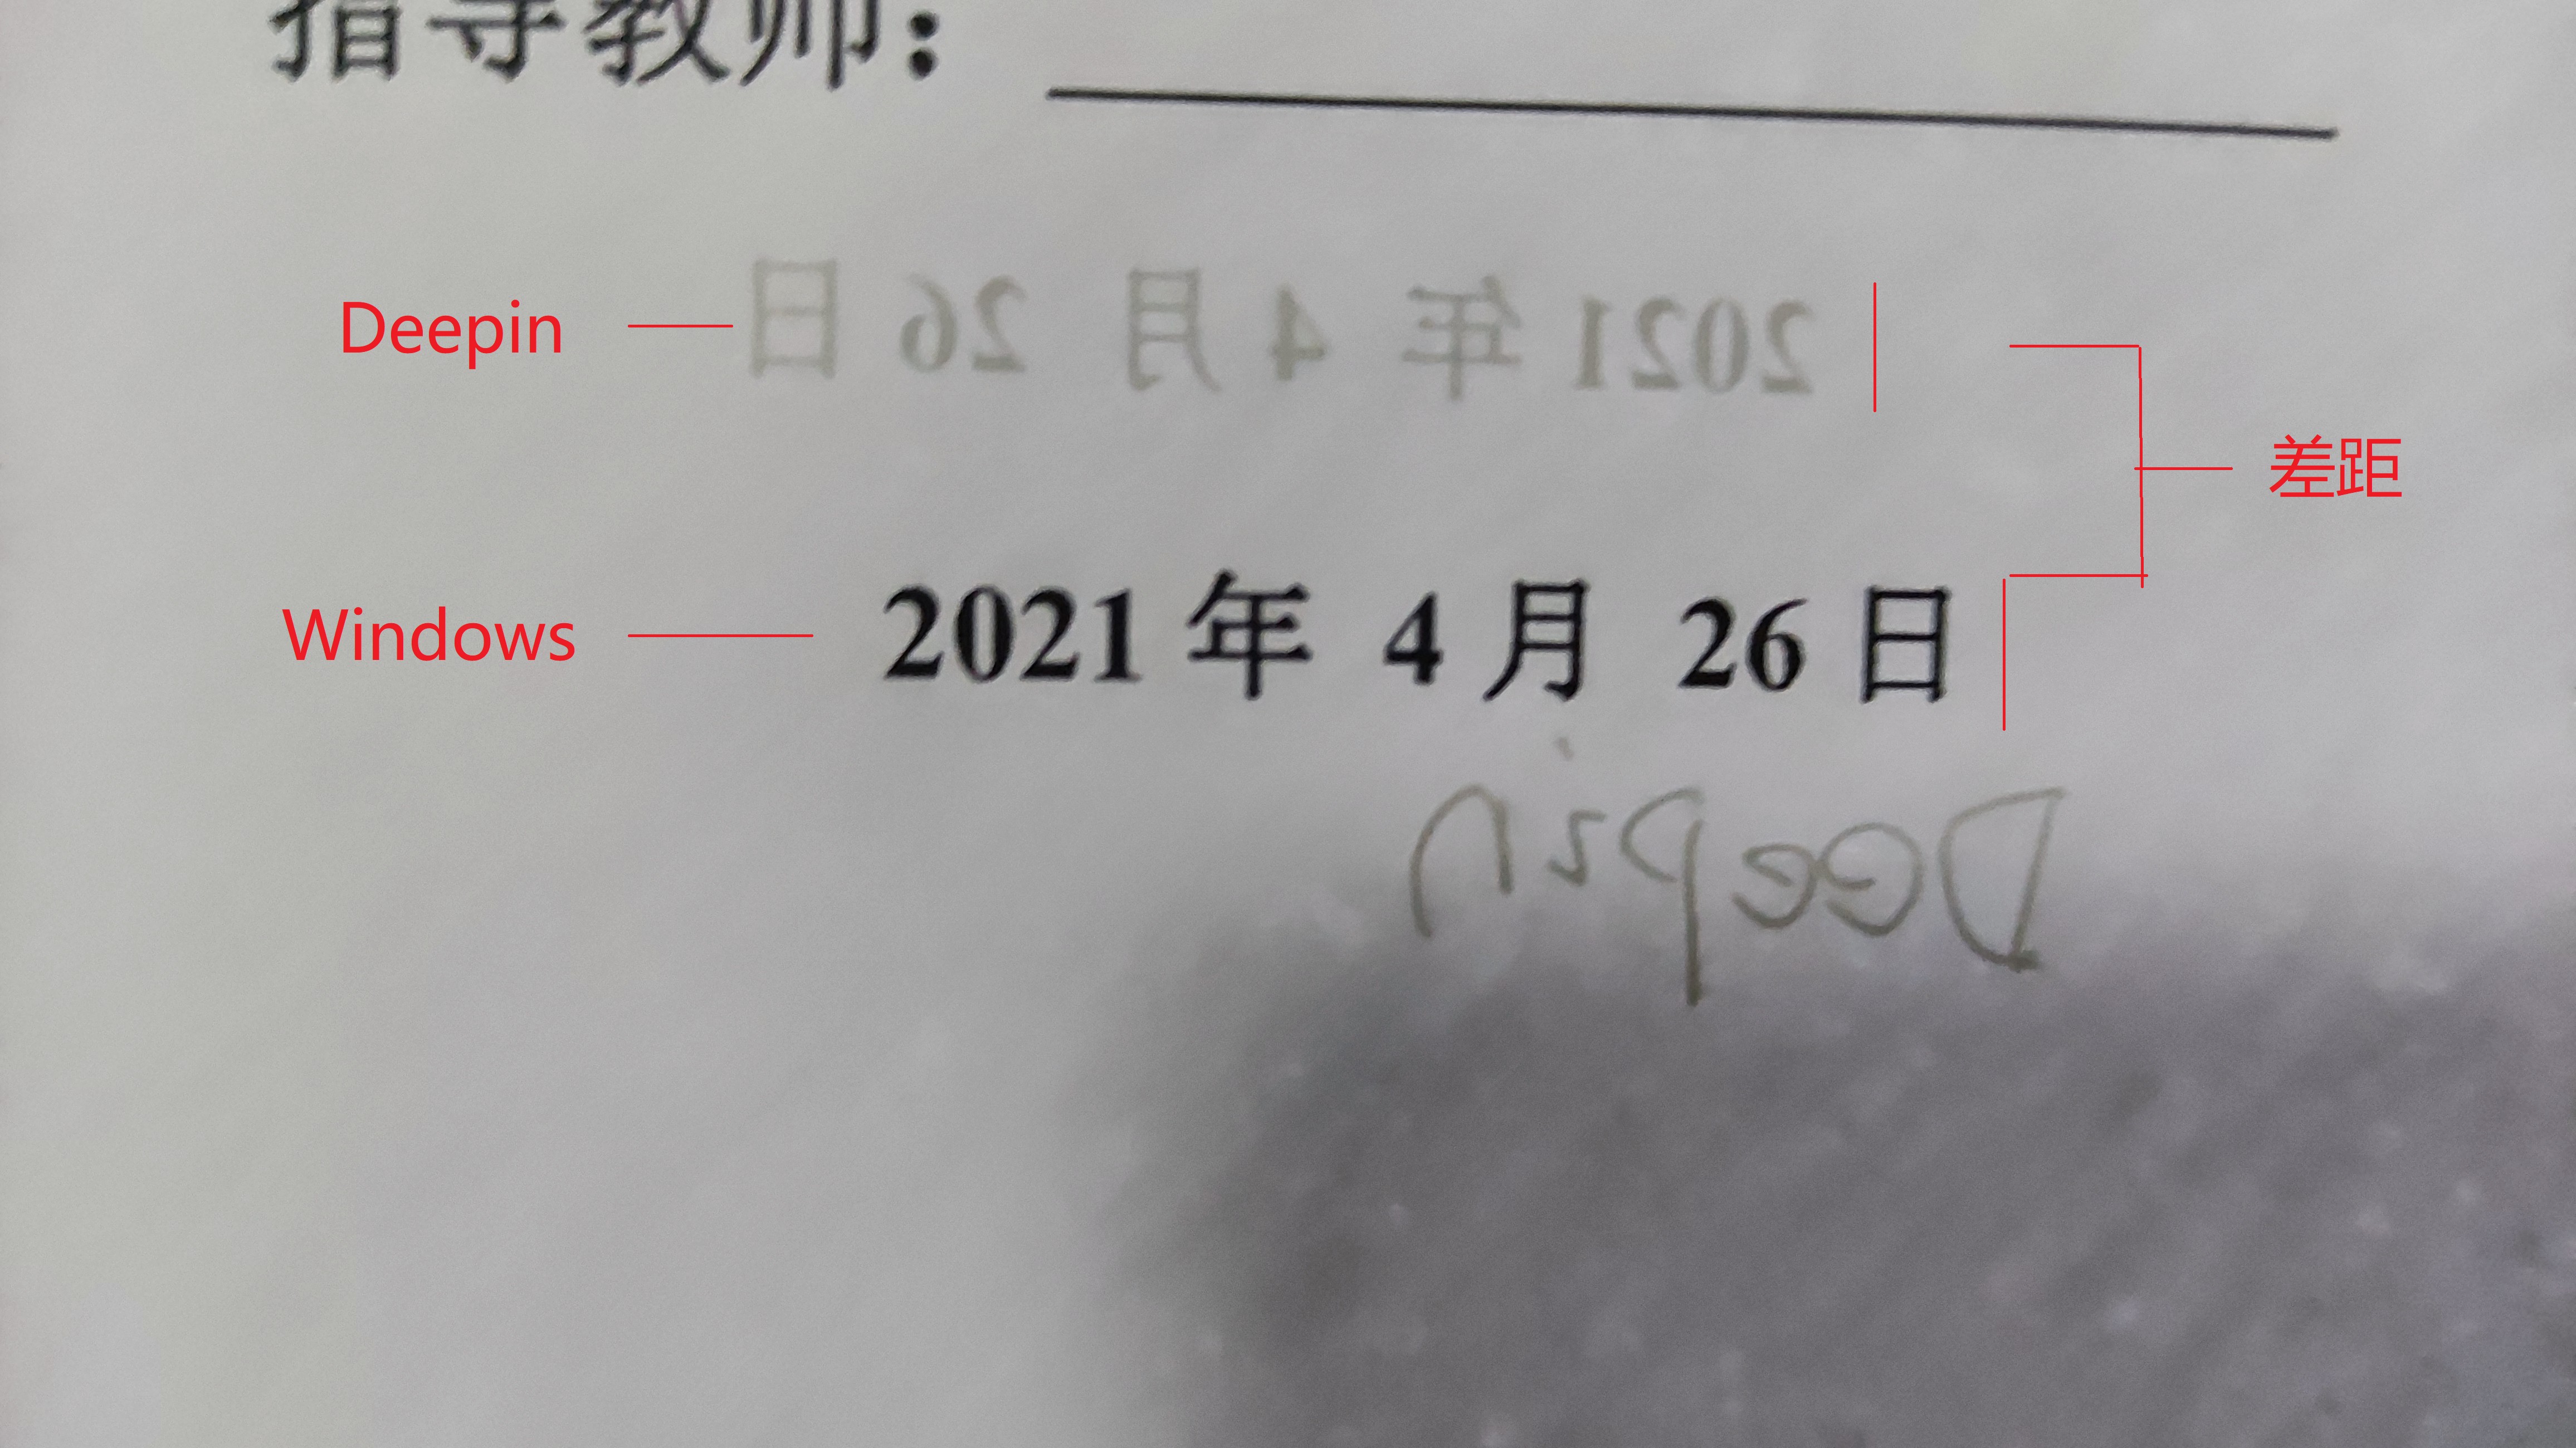 指导教师：
Deepin
2021 年 4 月 26 日
差距
Windows
2021 年 4 月 26 日
Deepin